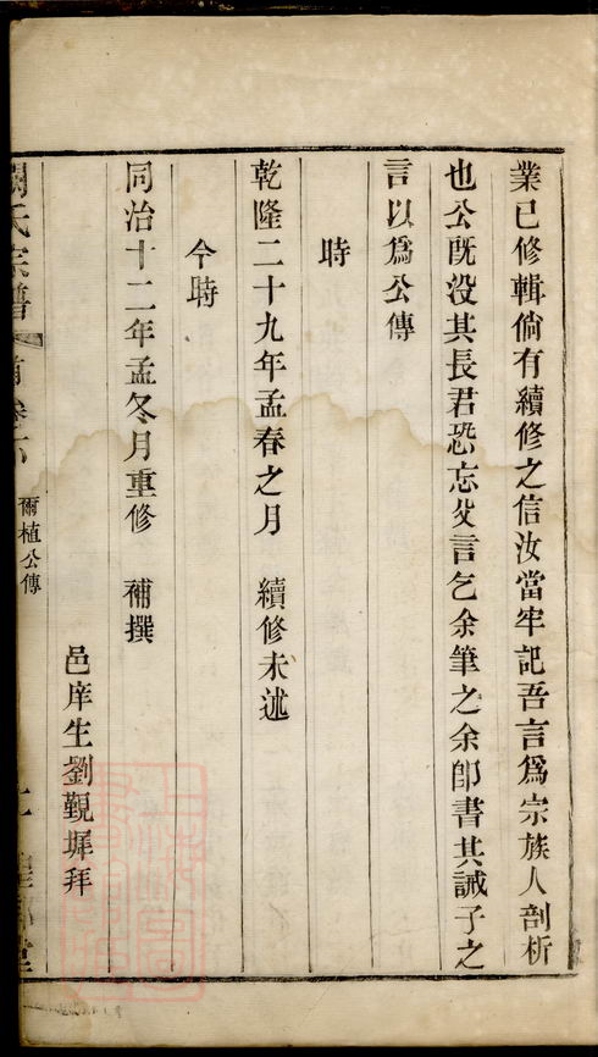 業已修輯倘有續修之信汝當牢記吾言爲宗族人剖析
也公旣没其長君恐忘父言乞余筆之余卽書其誡子之
言以爲公傳
時
乾隆二十九年孟春之月　續修未述
今時
同治十二年孟冬月重修　補撰
邑庠生劉觀墀拜
氏宗譜
爾植公傳